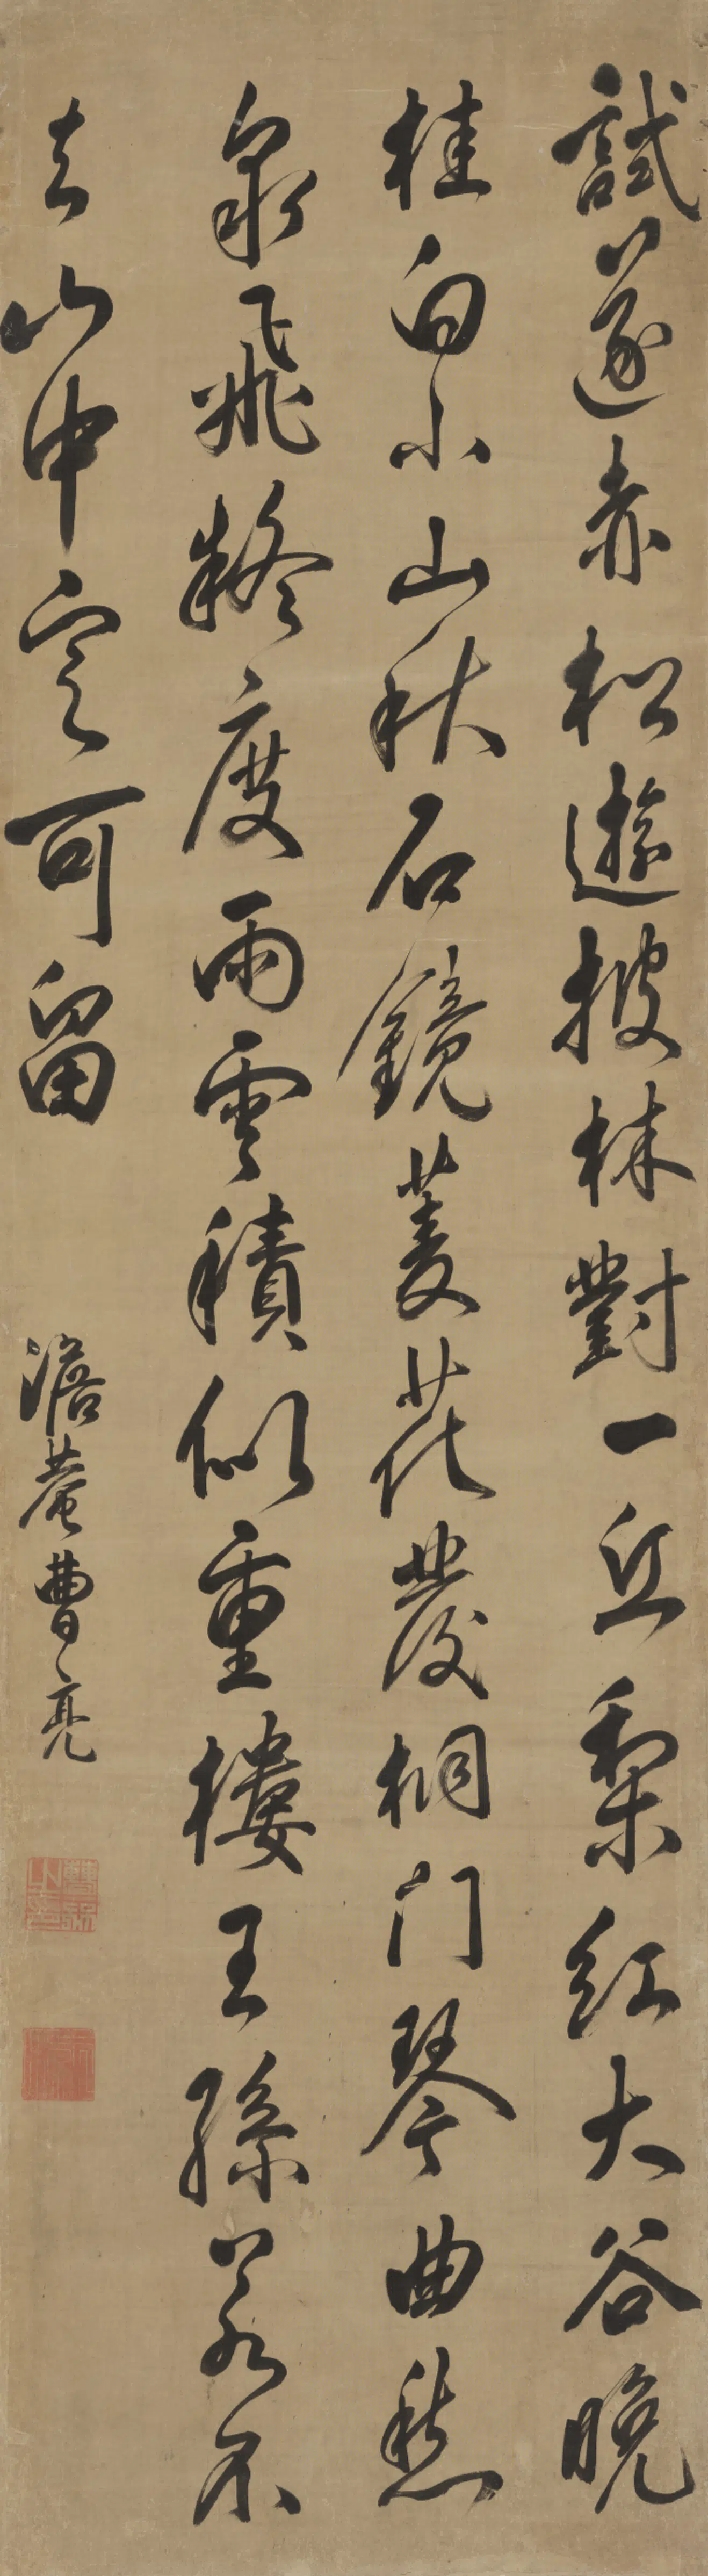 試逐赤松遊披林對一丘梨紅大谷晚
桂白小山秋石鏡菱花發桐門琴曲愁
泉飛疑度雨雲積似重樓王孫若不
去山中定可留
澹菴曹亮